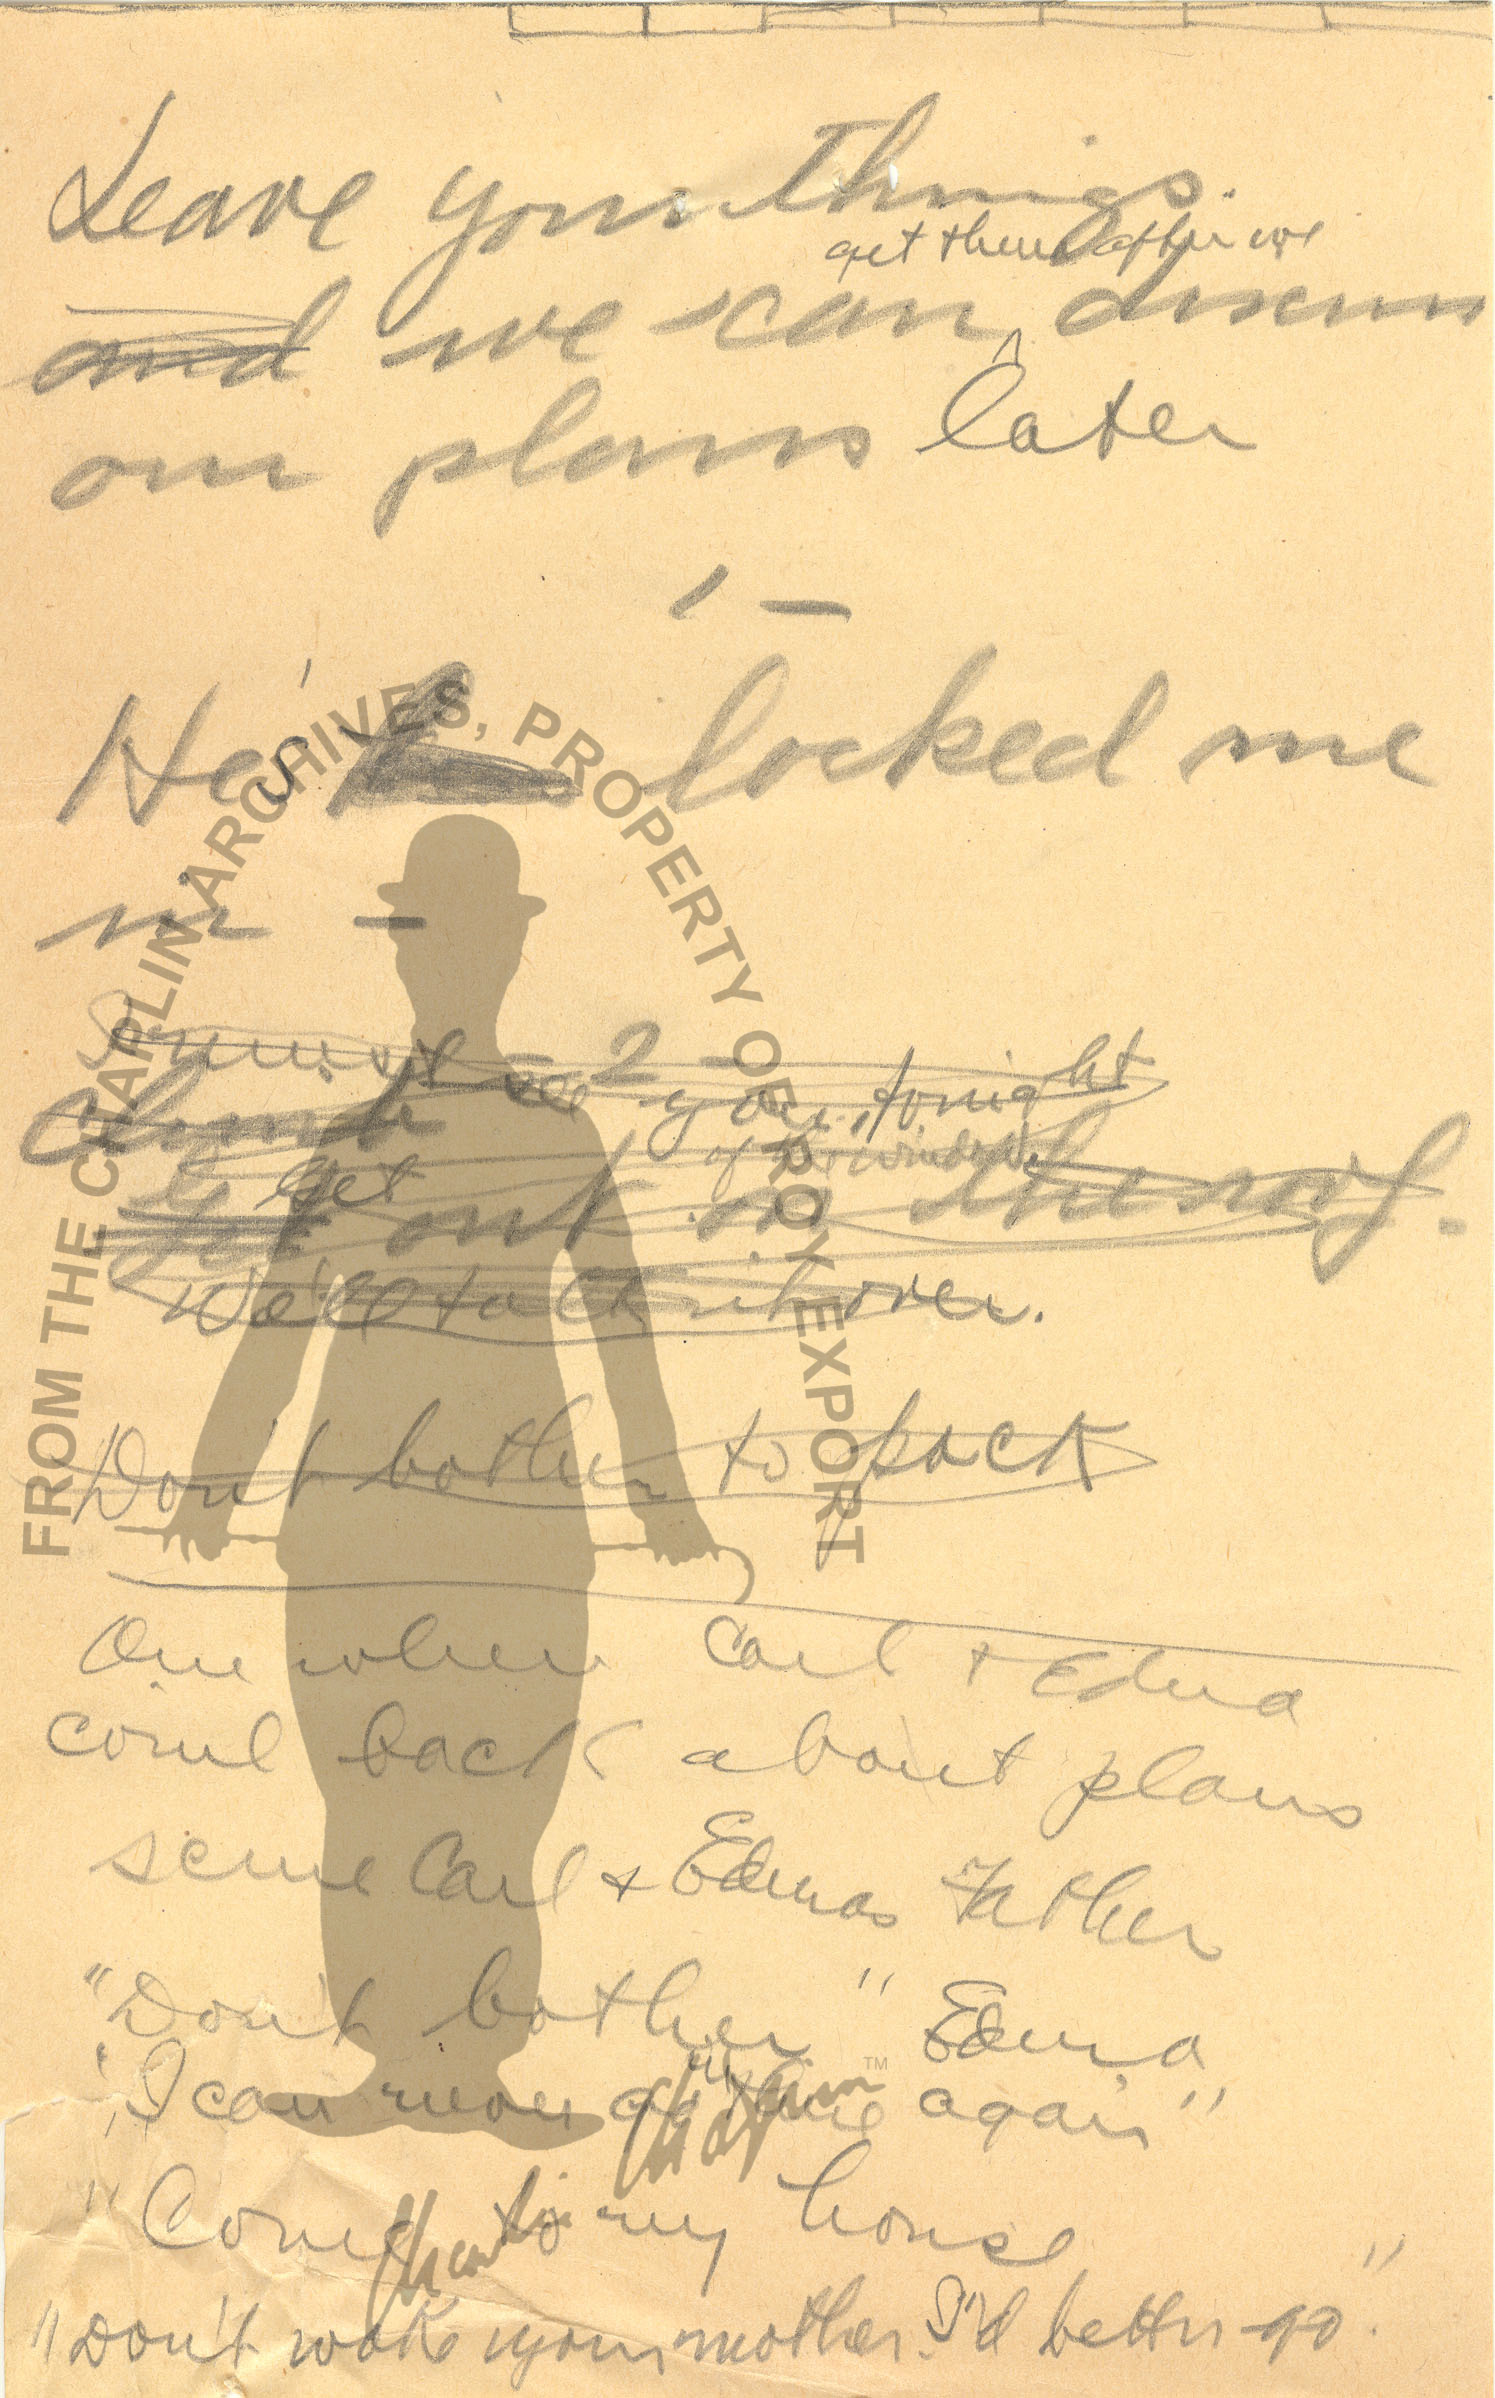 Leave your things.
get them after we
and we can discuss
our plans later
1 —
He's locked me
in —
I must see you tonight
2 —
Climb
of the window
get out on the roof.
We'll talk it over.
Don't bother to pack
One when Carl + Edna
come back about plans
scene Carl + Edna's Father
"Don't bother" Edna
"I can never go there again"
"Come to my house"
"Don't wake your mother. I'd better go."
FROM THE CHAPLIN ARCHIVES, PROPERTY OF ROY EXPORT
Charlie Chaplin
TM